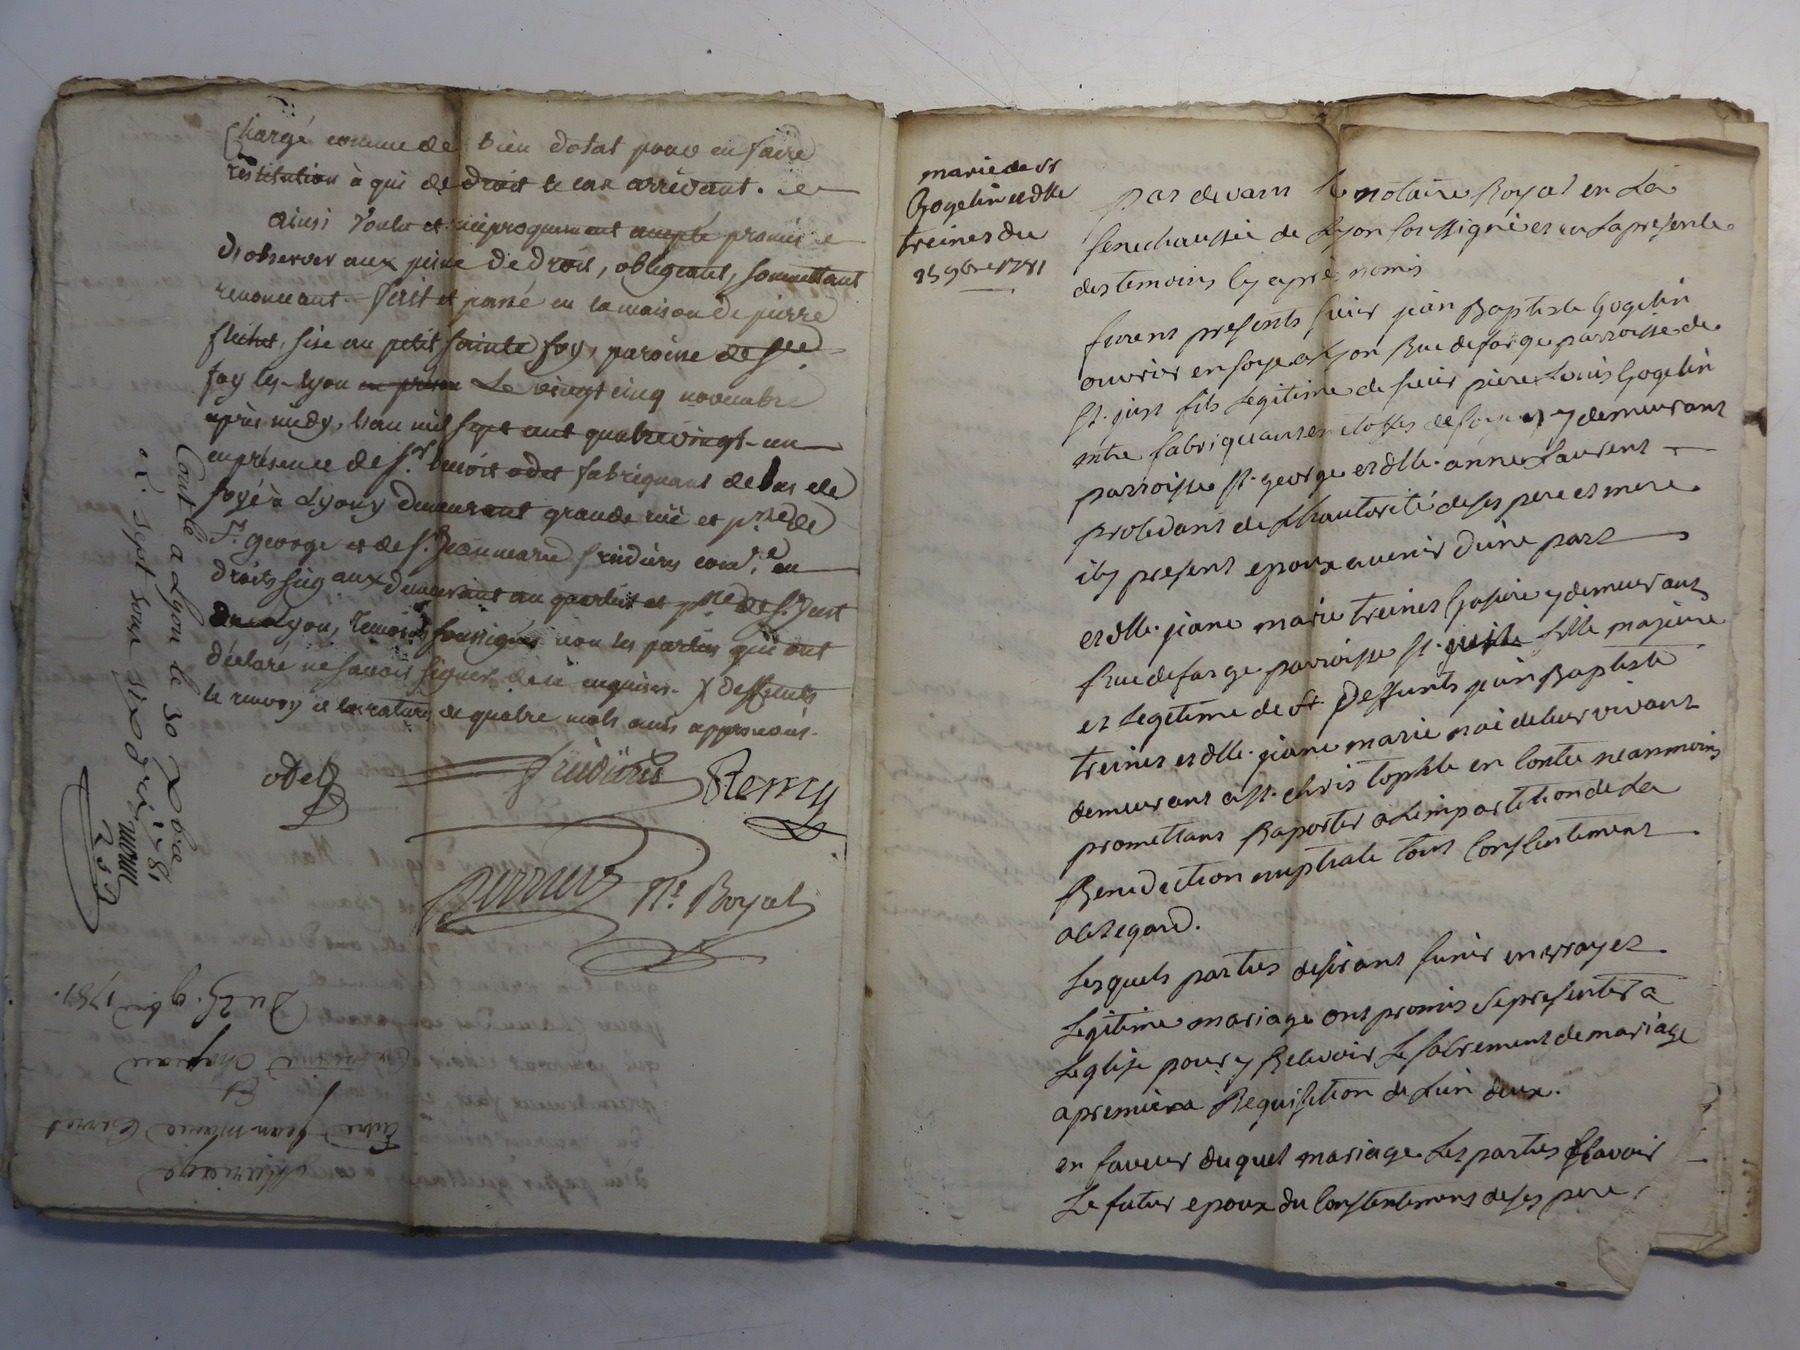 Chargé comme de bien dotal pour en faire
restitution à qui de droit le cas arrivant.
ainsi voulu et réciproquement accepté promis
d'observer aux peine de droit, obligeant, soumettant
renonceant. fait et passé en la maison de pierre
sise au petit sainte foy, paroisse de ste
foy les-lyon Le vingt cinq novembre
après midy, l'an mil sept cent quatrevingt-un
en présence de Sr. benoit odet fabriquant de bas de
soye à Lyon y demeurant grande ruë et psse de
St. george et de Sr. Jean marie en
droits aux demeurant au quartier et psse de St. Just
Lyon, temoins soussignés non les parties qui ont
déclaré ne savoir signer de ce enquises. X deffunts
le renvoy et la rature de quatre mots cités approuvés.
odet
Remy
No. Royal
Contlé a Lyon le 30 9bre 1781
R. sept sous six den.
Mariage
Entre Jean Marie
Et
Chapeau
Du 25. 9bre 1781.
mariage de Sr
Gogelin et dlle
treines du
25 9bre 1781
par devant le notaire Royal en La
senechaussée de Lyon soussigné et en La presente
des temoins cy aprè només
furent presents sieur jean Baptiste Gogelin
ouvrier en soye a Lyon Rue de farge parroisse de
St. just fils Legitime de sieur piere Louis Gogelin
mtre fabriquant en etoffes de soye et y demeurant
parroisse St. george et dlle. anne Laurent
procedant de Lhautorité de ses pere et mere
icy present epoux avenir d'une part
et dlle. jeane marie treines y demeurant
Rue de farge parroisse St. fille majeure
et Legitime de Deffunts jean Baptiste
treines et dlle. jeane marie de leur vivant
demeurant a St. christophle en neanmoins
promettant Raporter a Limpartition de La
Benediction nuptiale tout Consentement
a cet egard.
Lesquels parties desirant s'unir en vray et
Legitime mariage ont promis se presenter a
Leglise pour y Recevoir Le sacrement de mariage
a premiere Requisition de Lun deux.
en faveur duquel mariage Les parties scavoir
Le futur epoux du Consentement de ses pere